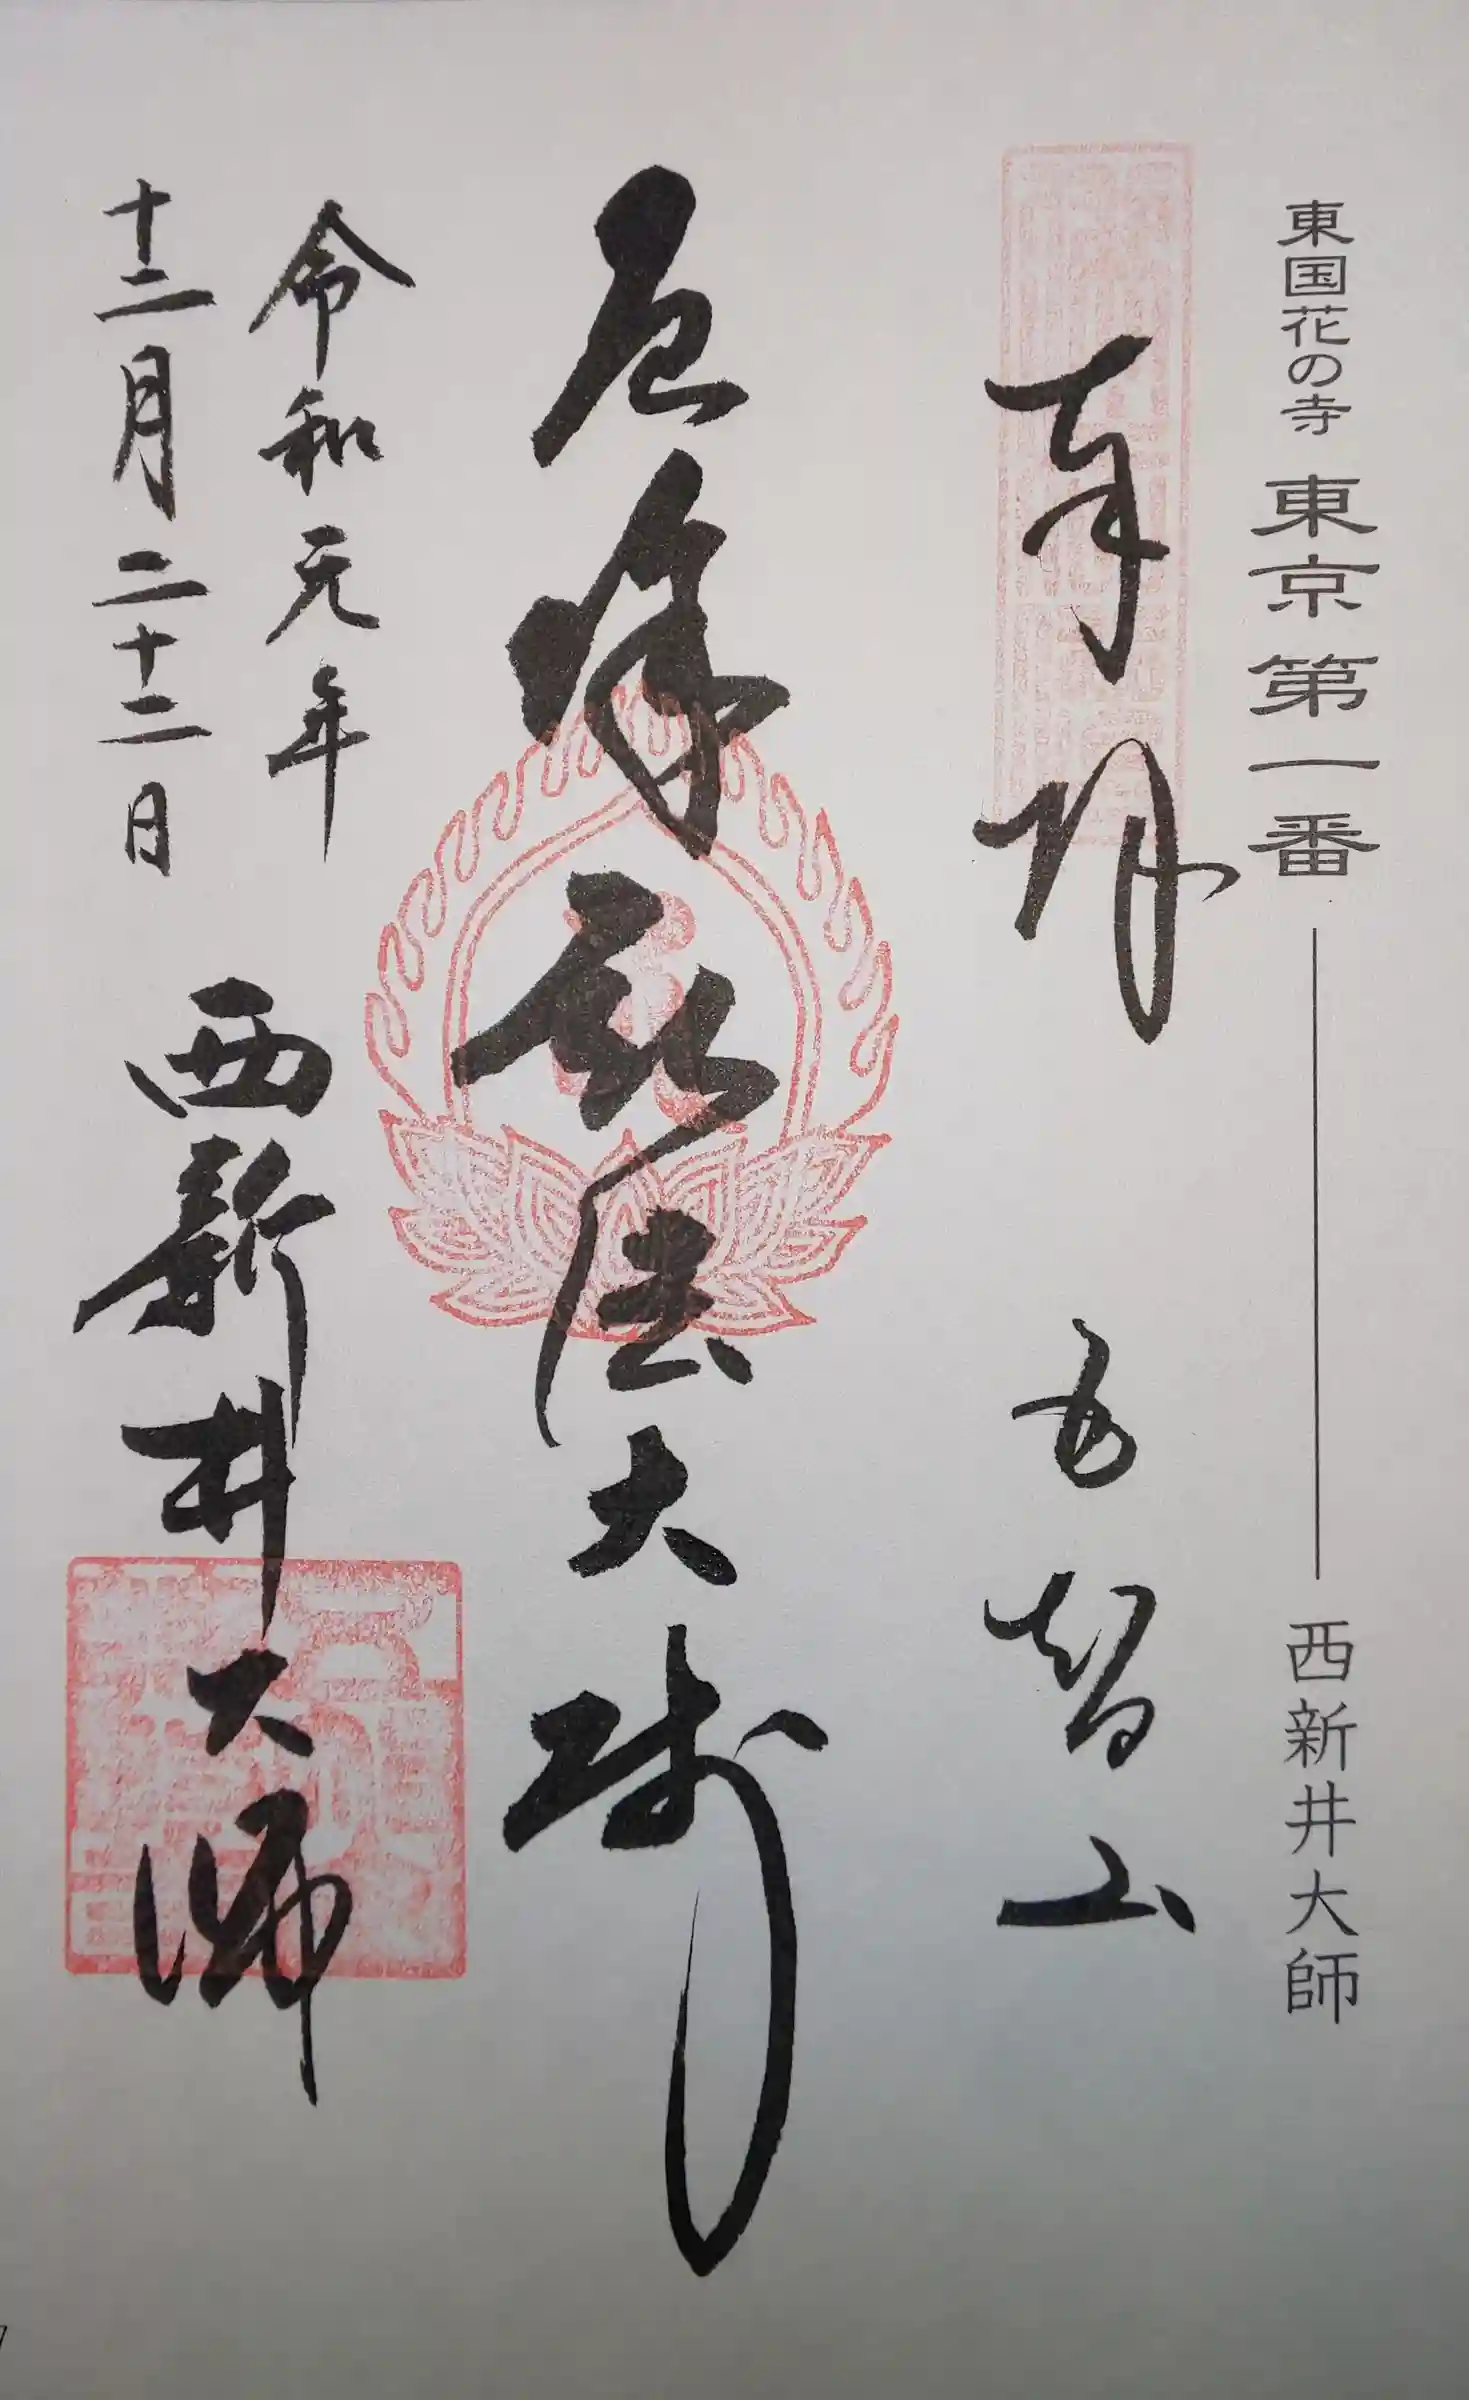 東国花の寺 東京第一番 ― 西新井大師
奉拝 五智山
厄除弘法大師
令和元年
十二月二十二日
西新井大師